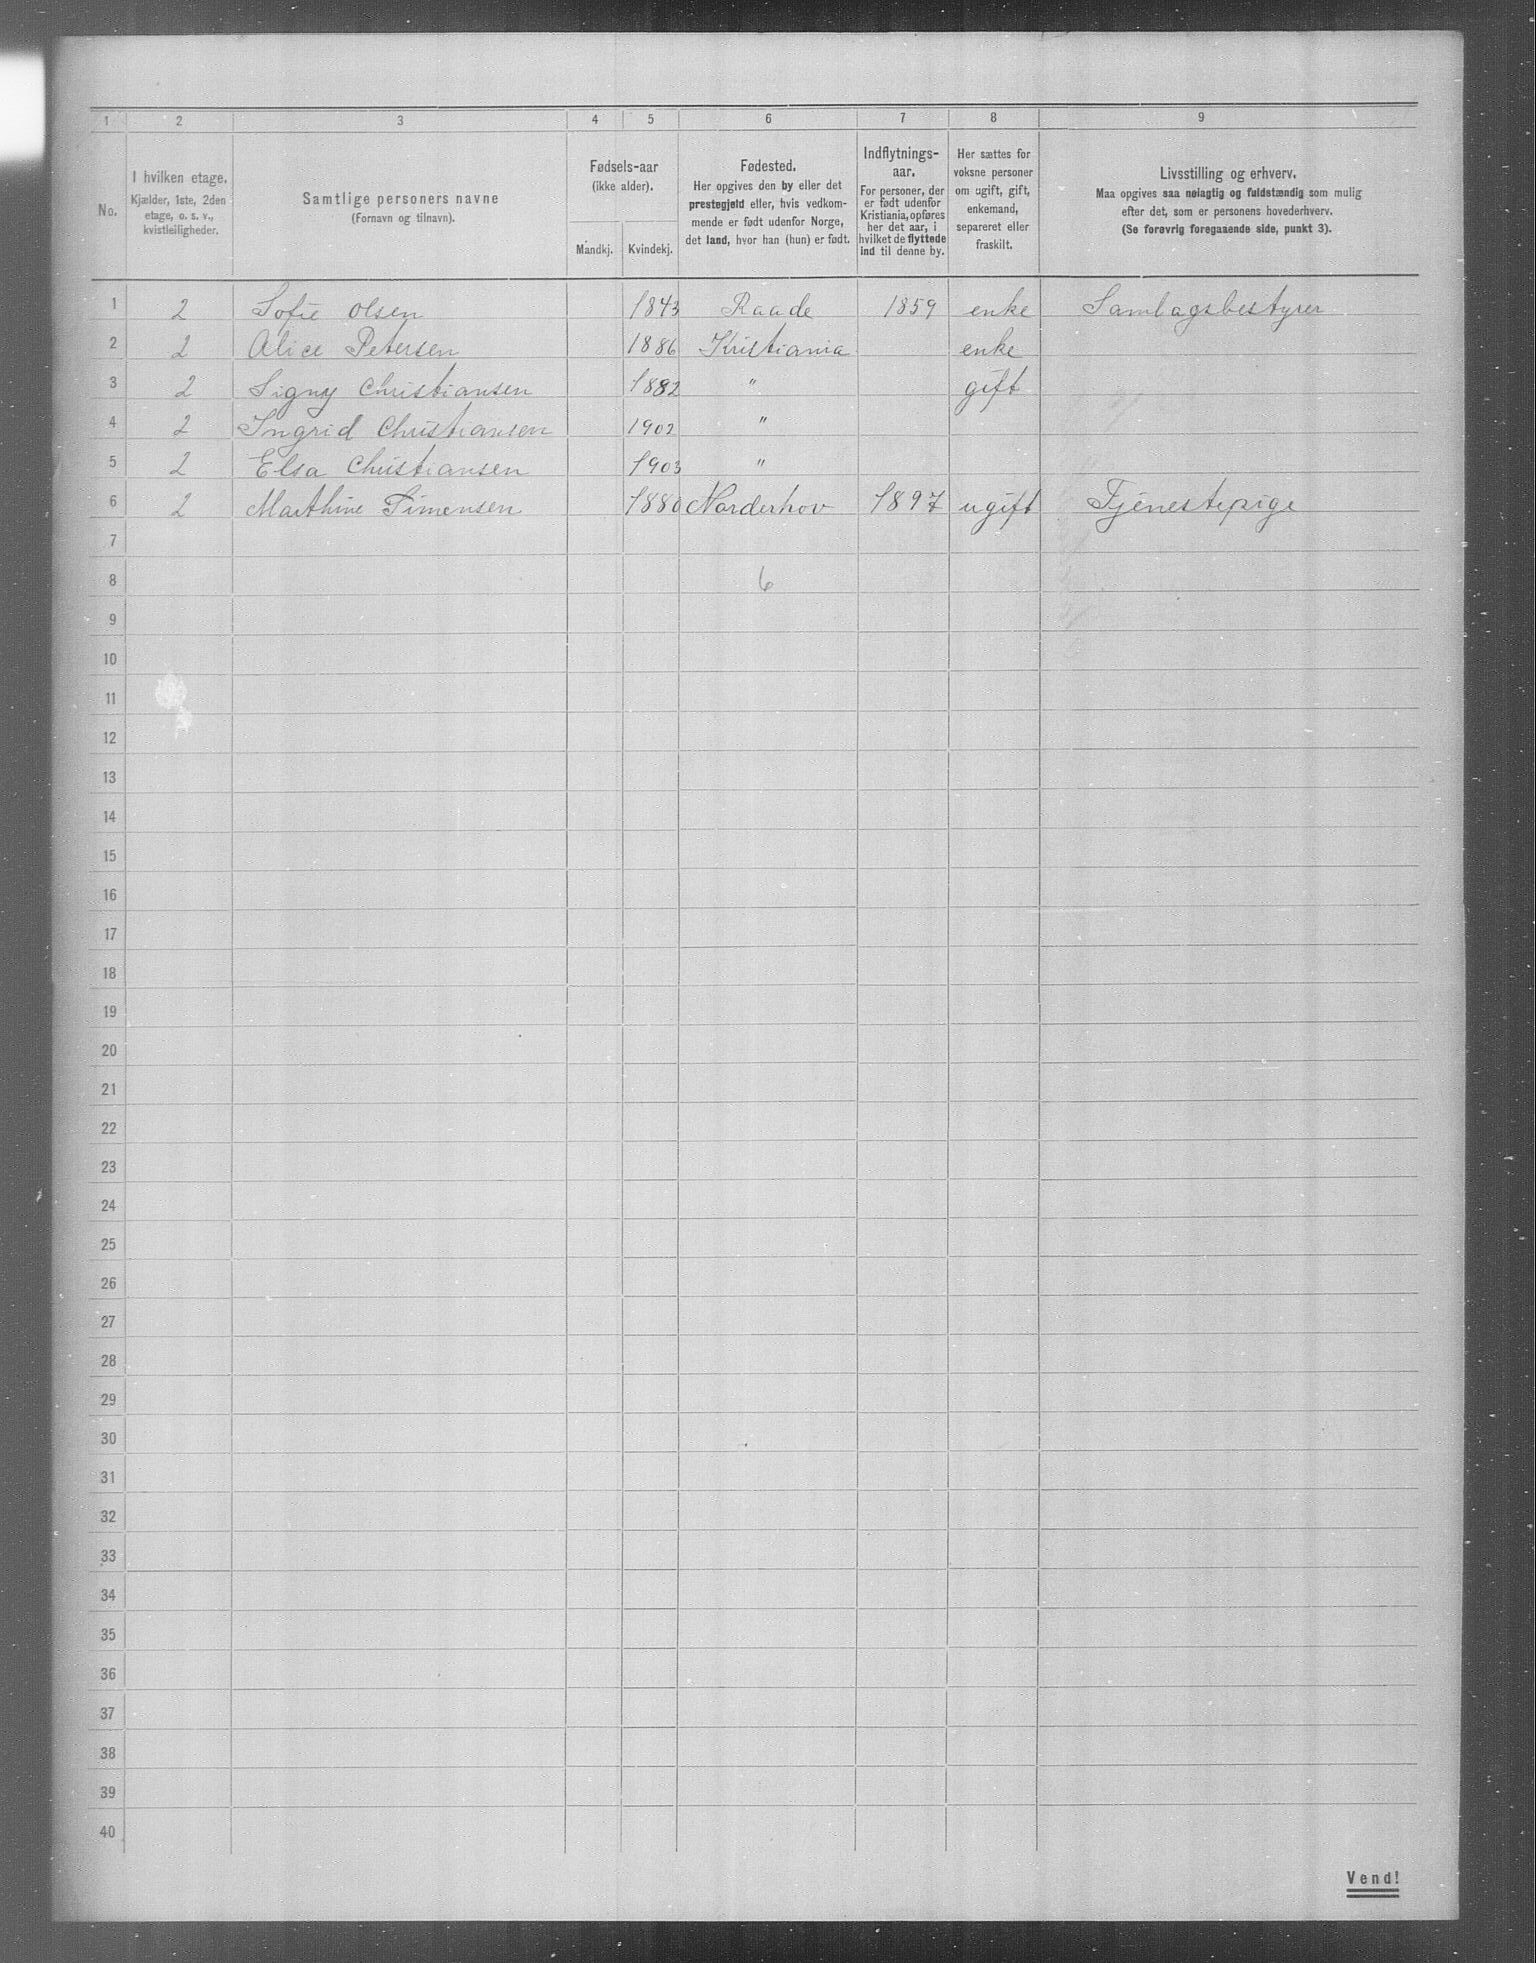 1 2 3 4 5 6 7 8 9
No.
I hvilken etage.
Kjælder, 1ste, 2den
etage, o. s. v.,
kvistleiligheder.
Samtlige personers navne
(Fornavn og tilnavn).
Fødsels-aar
(ikke alder).
Mandkj. Kvindekj.
Fødested.
Her opgives den by eller det
prestegjeld eller, hvis vedkom-
mende er født udenfor Norge,
det land, hvor han (hun) er født.
Indflytnings-
aar.
For personer, der
er født udenfor
Kristiania, opføres
her det aar, i
hvilket de flyttede
ind til denne by.
Her sættes for
voksne personer
om ugift, gift,
enkemand,
separeret eller
fraskilt.
Livsstilling og erhverv.
Maa opgives saa nøiagtig og fuldstændig som mulig
efter det, som er personens hovederhverv.
(Se forøvrig foregaaende side, punkt 3).
1 2 Sofie Olsen 1843 Raade 1859 enke Samlagsbestyrer
2 2 Alice Petersen 1886 Kristiania enke
3 2 Signy Christiansen 1882 " gift
4 2 Ingrid Christiansen 1902 "
5 2 Elsa Christiansen 1903 "
6 2 Marthine Simensen 1880 Norderhov 1897 ugift Tjenestepige
7
8 6
9
10
11
12
13
14
15
16
17
18
19
20
21
22
23
24
25
26
27
28
29
30
31
32
33
34
35
36
37
38
39
40
Vend!